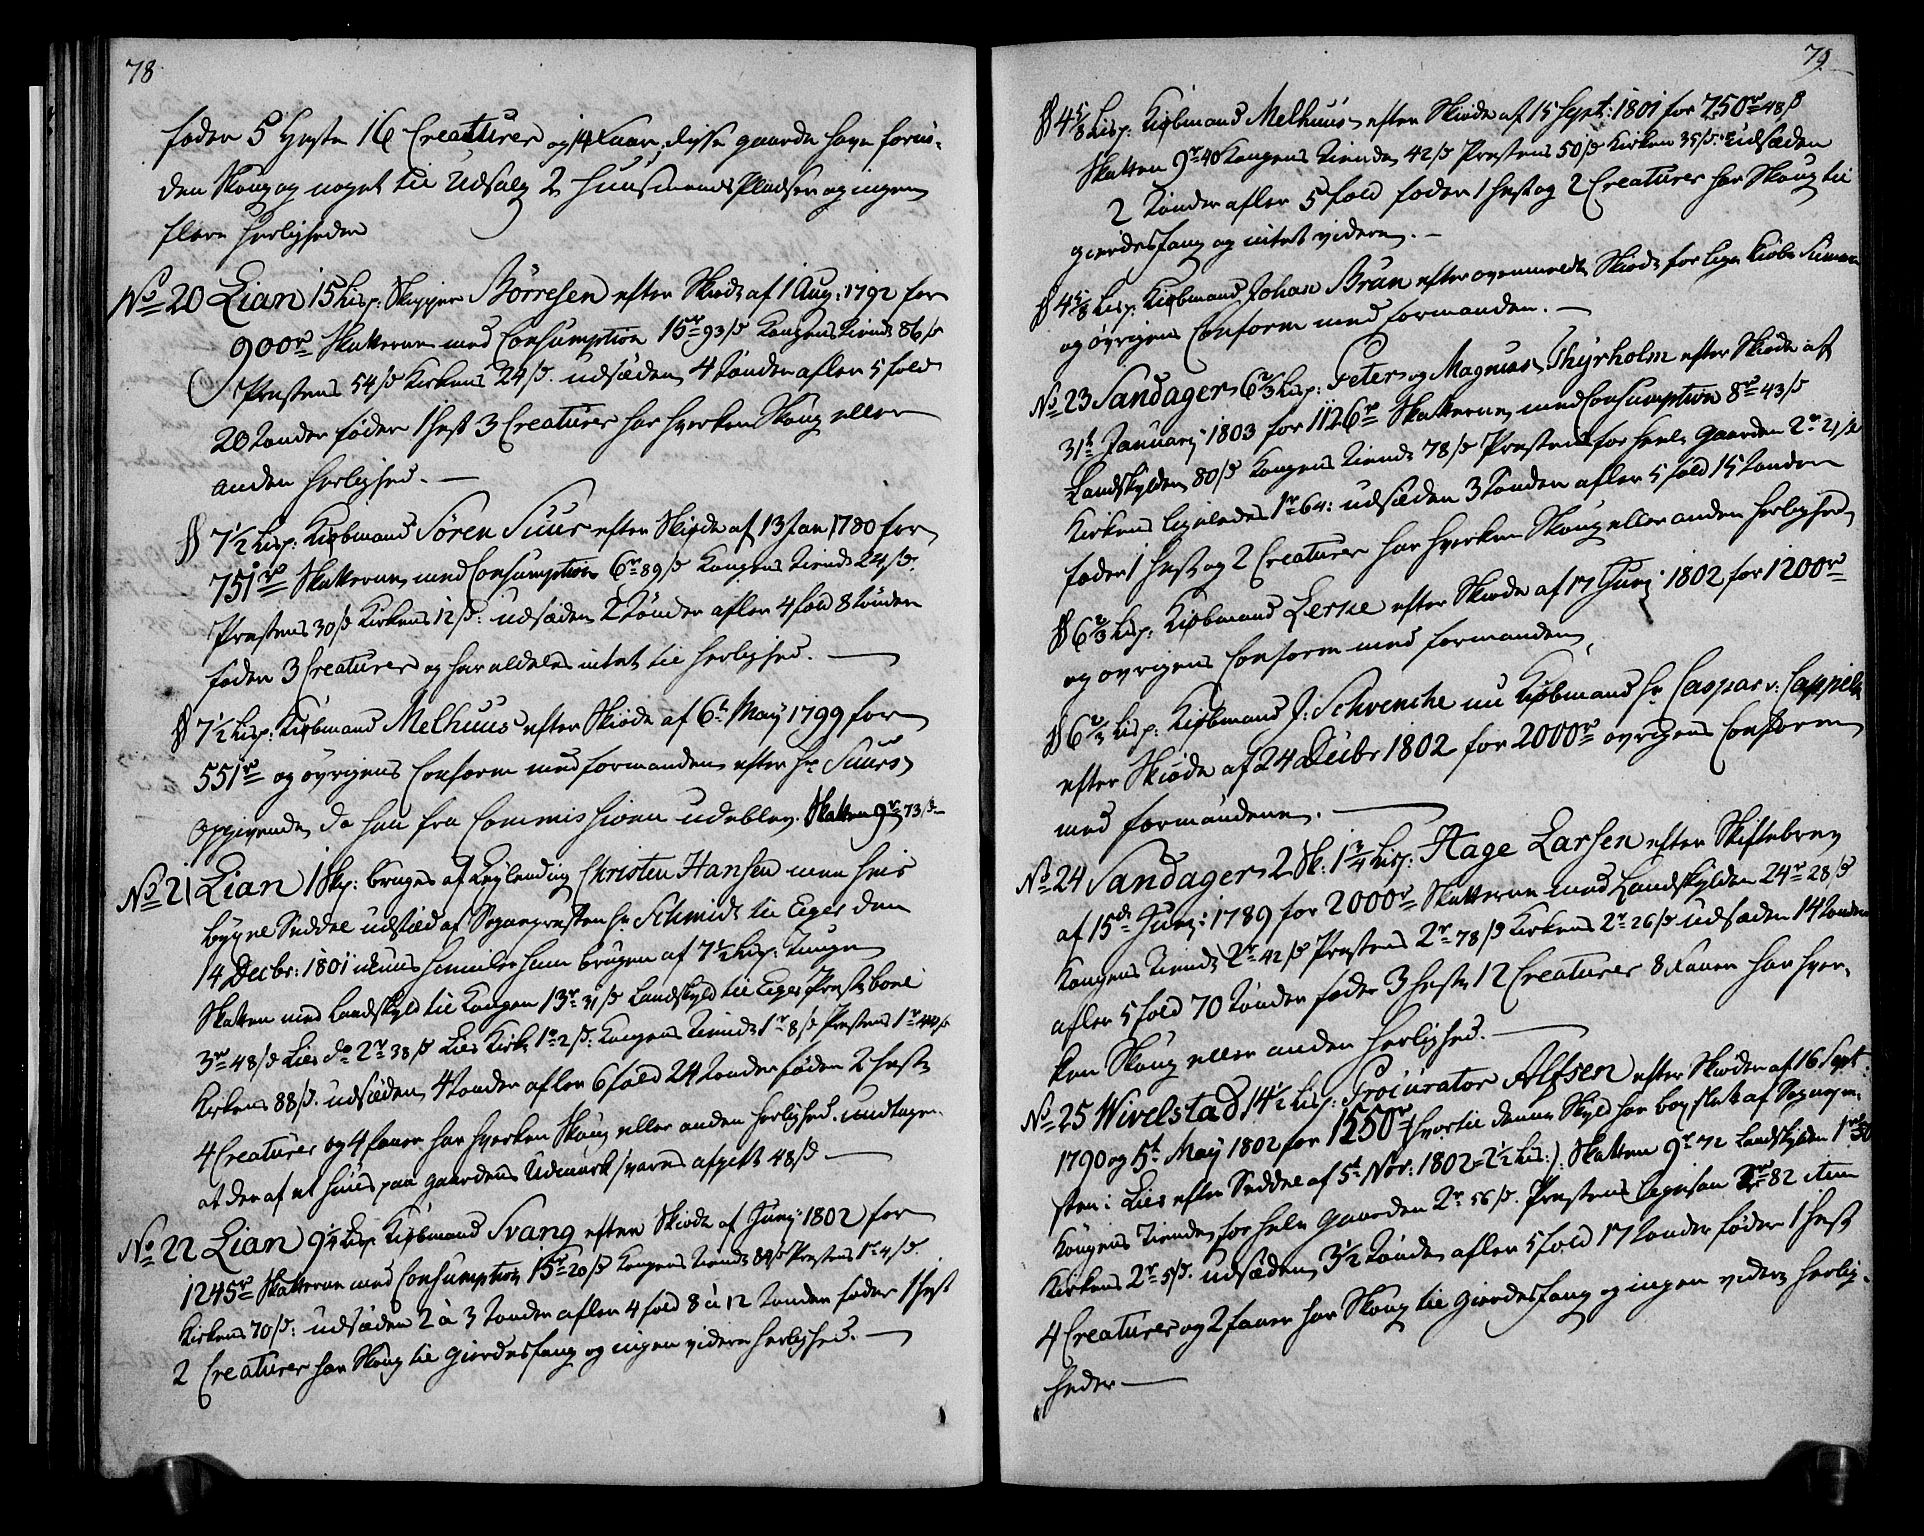 78
foder 5 Heste 16 Creaturer og 14 Faar, disse gaarde have foruden
den Skoug og noget til Udsalg 2 Huusmands Pladser og ingen
flere Herligheder
No 20 Lian 15 Lisp: Skipper Börresen efter Skiøde af 1 Aug: 1792 for
900r Skatterne med Consumption 15r 93/s Kongens Tiende 86/s
Prestens 54/s Kirkens 24/s. udsæden 4 Tønder afler 5 fold
20 Tønder føder 1 Hest 3 Creaturer har hverken Skoug eller
anden Herlighed. —
§ 7½ Lisp: Kiøbmand Sören Suur efter Skiøde af 13 Jan 1780 for
751r Skatterne med Consumption 6r 89/s Kongens Tiende 24/s.
Prestens 30/s Kirkens 12/s: udsæden 2 Tønder afler 4 fold 8 Tønder
foder 3 Creaturer og har aldeles intet til Herlighed. —
§ 7½ Lisp: Kiøbmand Melhuus efter Skiøde af 6t May 1799 for
551r og øvrigens Conform med formanden efter Hr Suurs
Opgivende, da han fra Commissionen udeblev. Skatten 9r 73/s —
No 21 Lian 1 Skp: bruges af Leylending Christen Hansen men hans
bygsel Seddel udstæd af Sogneprresten Hr Schmidt til Eger den
14 Decbr: 1801 hiemler ham brugen af 7½ Lisp: Tunge
Skatten med Landskyld til Kongen 13r 31/s Landskyld til Eger Prestebord
3r 48/s Lier do 2r 38/s Lier Kirke 1r 2/s: Kongens Tiende 1r 8/s Prestens 1r 40/s
Kirkens 88/s. udsæden 4 Tønder afler 6 fold 24 Tønder føder 2 Heste
4 Creaturer og 4 faarer har hverken Skoug eller anden Herlighed. undtagen
at der af et Huus paa gaardens Udmark svares afgift 48/s —
No 22 Lian 9¼ Lisp Kiøbmand Svang efter Skiøde af Junj 1802 for
1245r Skatterne med Consumption 15r 20/s Kongens Tiende 84/s Prestens 1r 4/s.
Kirkens 70/s: udsæden 2 à 3 Tønder afler 4 fold 8 à 12 Tønder foder 1 Hest
2 Creaturer har Skoug til Gierdesfang og ingen videre Herlighed. —
79
§ 4⅝ Lisp: Kiøbmand Melhuus efter Skiøde af 15 Sept: 1801 for 750r 48/s
Skatten 9r 40 Kongens Tiende 42/s Prestens 50/s Kirken 35/s: udsæden
2 Tønder afler 5 fold foder 1 Hest og 2 Creaturer har Skoug til
gierdesfang og intet videre. —
§ 4⅝ Lisp: Kiøbmand Johan Brun efter ovenmeldte Skiøde for lige Kiøbe Summa
og øvrigens Conform med formanden. —
No 23 Sandager 6⅔ Lisp: Peter og Magnus Thyrholm efter Skiøde af
31t Januarj 1803 for 1126r Skatterne med Consumption 8r 43/s
Landskylden 80/s Kongens Tiende 78/s Prestens for heele Gaarden 2r 21/s
Kirkens ligeledes 1r 64: udsæden 3 Tønder afler 5 fold 15 Tønder
foder 1 Hest og 2 Creaturer har hverken Skoug eller anden Herlighed
§ 6⅔ Lisp: Kiøbmand Lerche efter Skiøde af 17 Junj 1802 for 1200r
og øvrigens Conform med formanden,
§ 6⅔ Lisp: Kiøbmand J: Schvenche nu Kiøbmand Hr Caspar v: Cappelen
efter Skiøde af 24 Decbr 1802 for 2000r øvrigens Conform
med formændene. —
No 24 Sandager 2 Sk: 1¾ Lisp: Aage Larsen efter Skiftebrev
af 15de Junj: 1789 for 2000r Skatterne med Landskylden 24r 28/s
Kongens Tiende 2r 42/s Prestens 2r 78/s Kirkens 2r 26/s udsæden 14 Tønder
afler 5 fold 70 Tønder foder 3 Heste 12 Creaturer 8 Faarer har hver-
ken Skoug eller anden Herlighed. —
No 25 Wivelstad 14½ Lisp: Procurator Alfsen efter Skiøder af 16 Sept:
1790 og 5t May 1802 for 1550r (hvortil denne Skyld har bøxslet af Sognepre-
sten i Lier efter Seddel af 5t Nov: 1802 = 2½ Lis:) Skatten 9r 72 Landskylden 1r 50
Kongens Tiende for heele Gaarden 2r 56/s. Prestens ligesaa 2r 82 item
Kirkens 2r 5/s. udsæden 3½ Tønde afler 5 fold 17 Tønder føder 1 Hest
4 Creaturer og 2 faarer har Skoug til Gierdesfang og ingen videre Herlig-
heder —